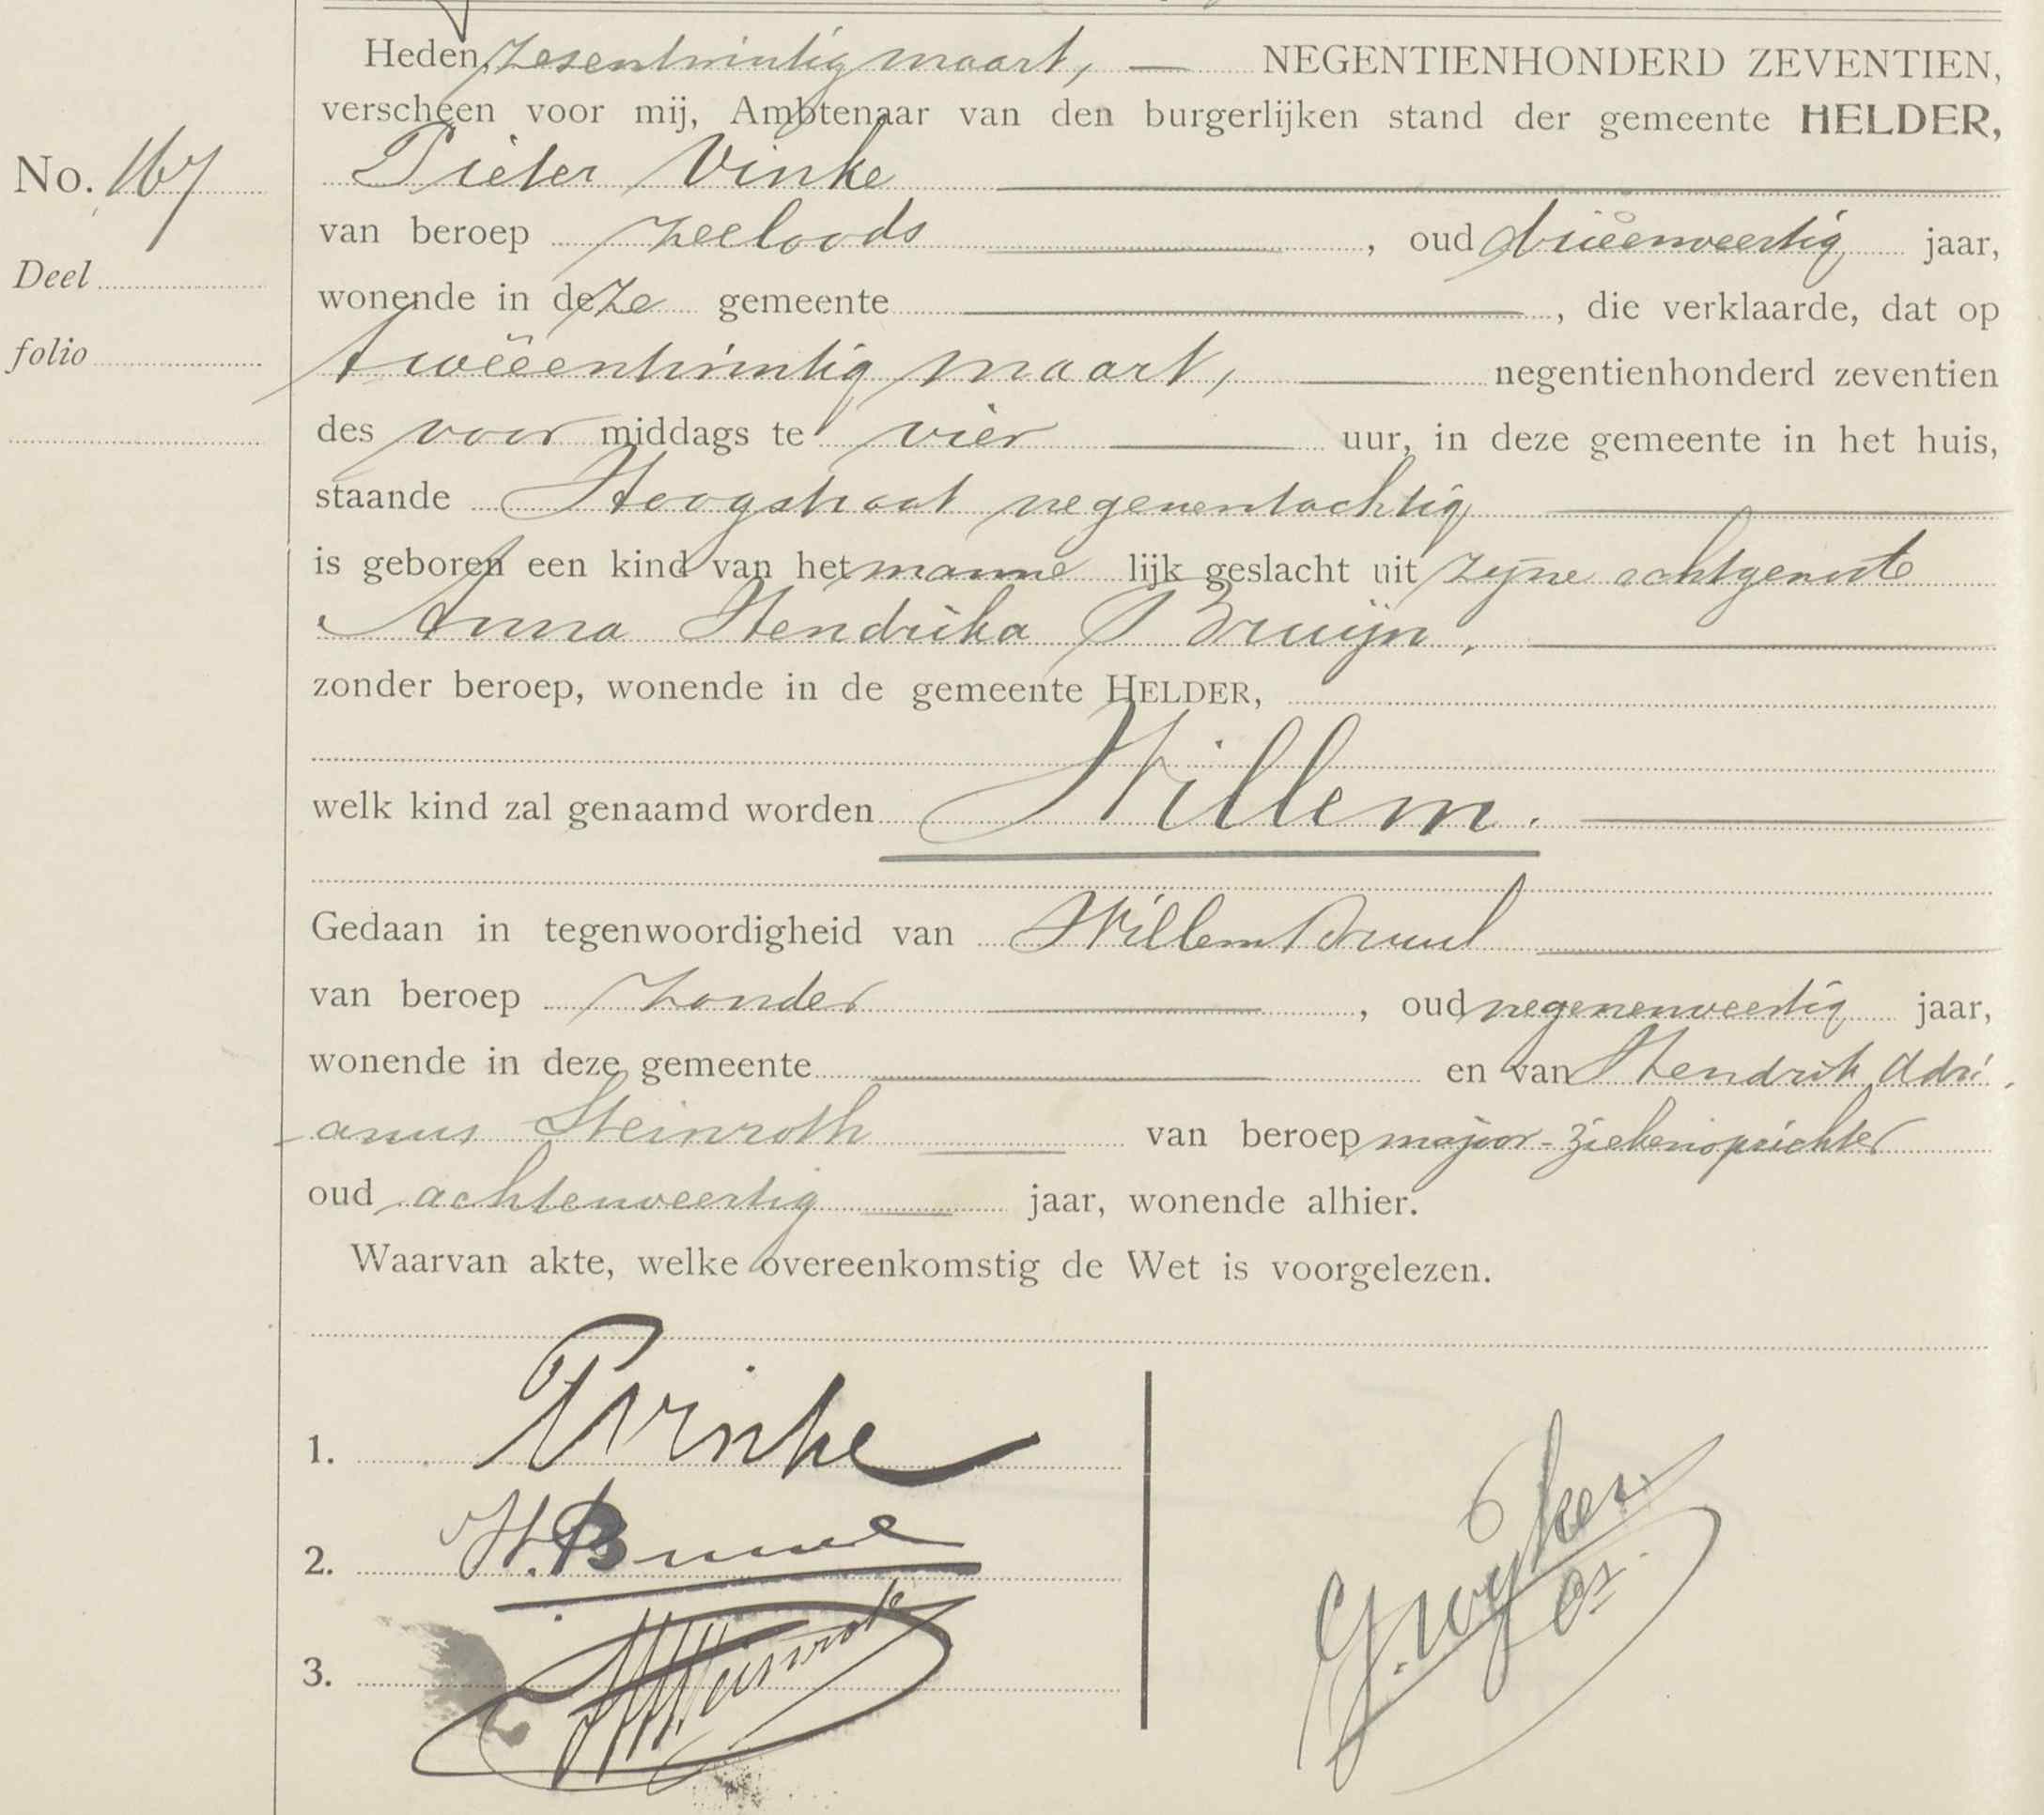 Heden, zesentwintig maart, — NEGENTIENHONDERD ZEVENTIEN,
verscheen voor mij, Ambtenaar van den burgerlijken stand der gemeente HELDER,
No. 167
Pieter Vinke
van beroep zeeloods, oud drieënveertig jaar,
Deel
wonende in deze gemeente, die verklaarde, dat op
folio
tweeëntwintig maart, negentienhonderd zeventien
des voor middags te vier uur, in deze gemeente in het huis,
staande Hoogstraat negenentachtig
is geboren een kind van het manne lijk geslacht uit zijne echtgenoote
Anna Hendrika Bruijn,
zonder beroep, wonende in de gemeente HELDER,
welk kind zal genaamd worden Willem.
Gedaan in tegenwoordigheid van Willem Bruul
van beroep zonder, oud negenenveertig jaar,
wonende in deze gemeente en van Hendrik Adri-
anus Steinroth van beroep majoor-ziekenoprichter
oud achtenveertig jaar, wonende alhier.
Waarvan akte, welke overeenkomstig de Wet is voorgelezen.
1. P Vinke
2. W. Bruul
3. Steinroth